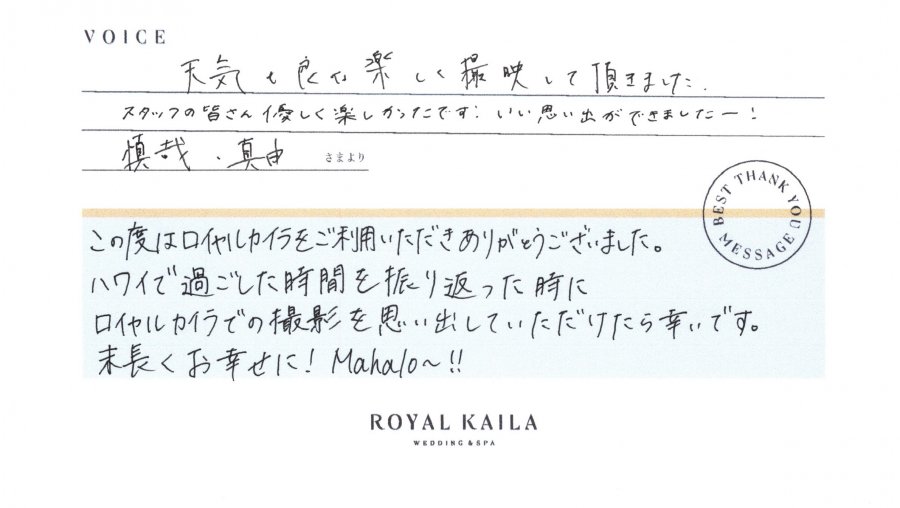 VOICE
天気も良く楽しく撮映して頂きました.
スタッフの皆さん優しく楽しかったです! いい思い出ができましたー!
慎哉・真由 さまより
BEST THANK YOU MESSAGE
この度はロイヤルカイラをご利用いただきありがとうございました。
ハワイで過ごした時間を振り返った時に
ロイヤルカイラでの撮影を思い出していただけたら幸いです。
末長くお幸せに! Mahalo~!!
ROYAL KAILA
WEDDING & SPA